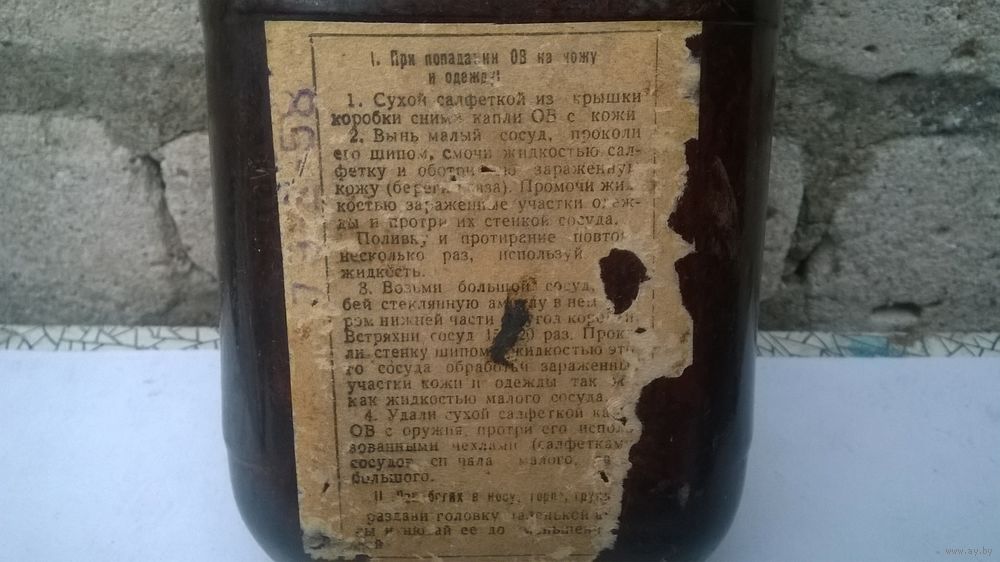 I. При попадании ОВ на кожу
и одежду
1. Сухой салфеткой из крышки
коробки сними капли ОВ с кожи
2. Вынь малый сосуд, проколи
его шипом, смочи жидкостью сал-
фетку и зараженную
кожу (береги глаза). Промочи жид-
костью зараженные участки одеж-
ды и протри их стенкой сосуда.
Поливку и протирание повтор
несколько раз, используй
жидкость.
3. Возьми большой сосуд,
бей стеклянную ампулу в нем
ром нижней части угол коробки.
Встряхни сосуд 15 20 раз. Прок
ли стенку шипом жидкостью эт
го сосуда обработай зараженны
участки кожи и одежды так ж
как жидкостью малого сосуда.
4. Удали сухой салфеткой ка
ОВ с оружия, протри его исполь
зованными чехлами (салфеткам
сосудов сначала малого,
большого.
II. в носу, горле, груд
раздави головку маленькой
ты и нюхай ее до
www.ay.by